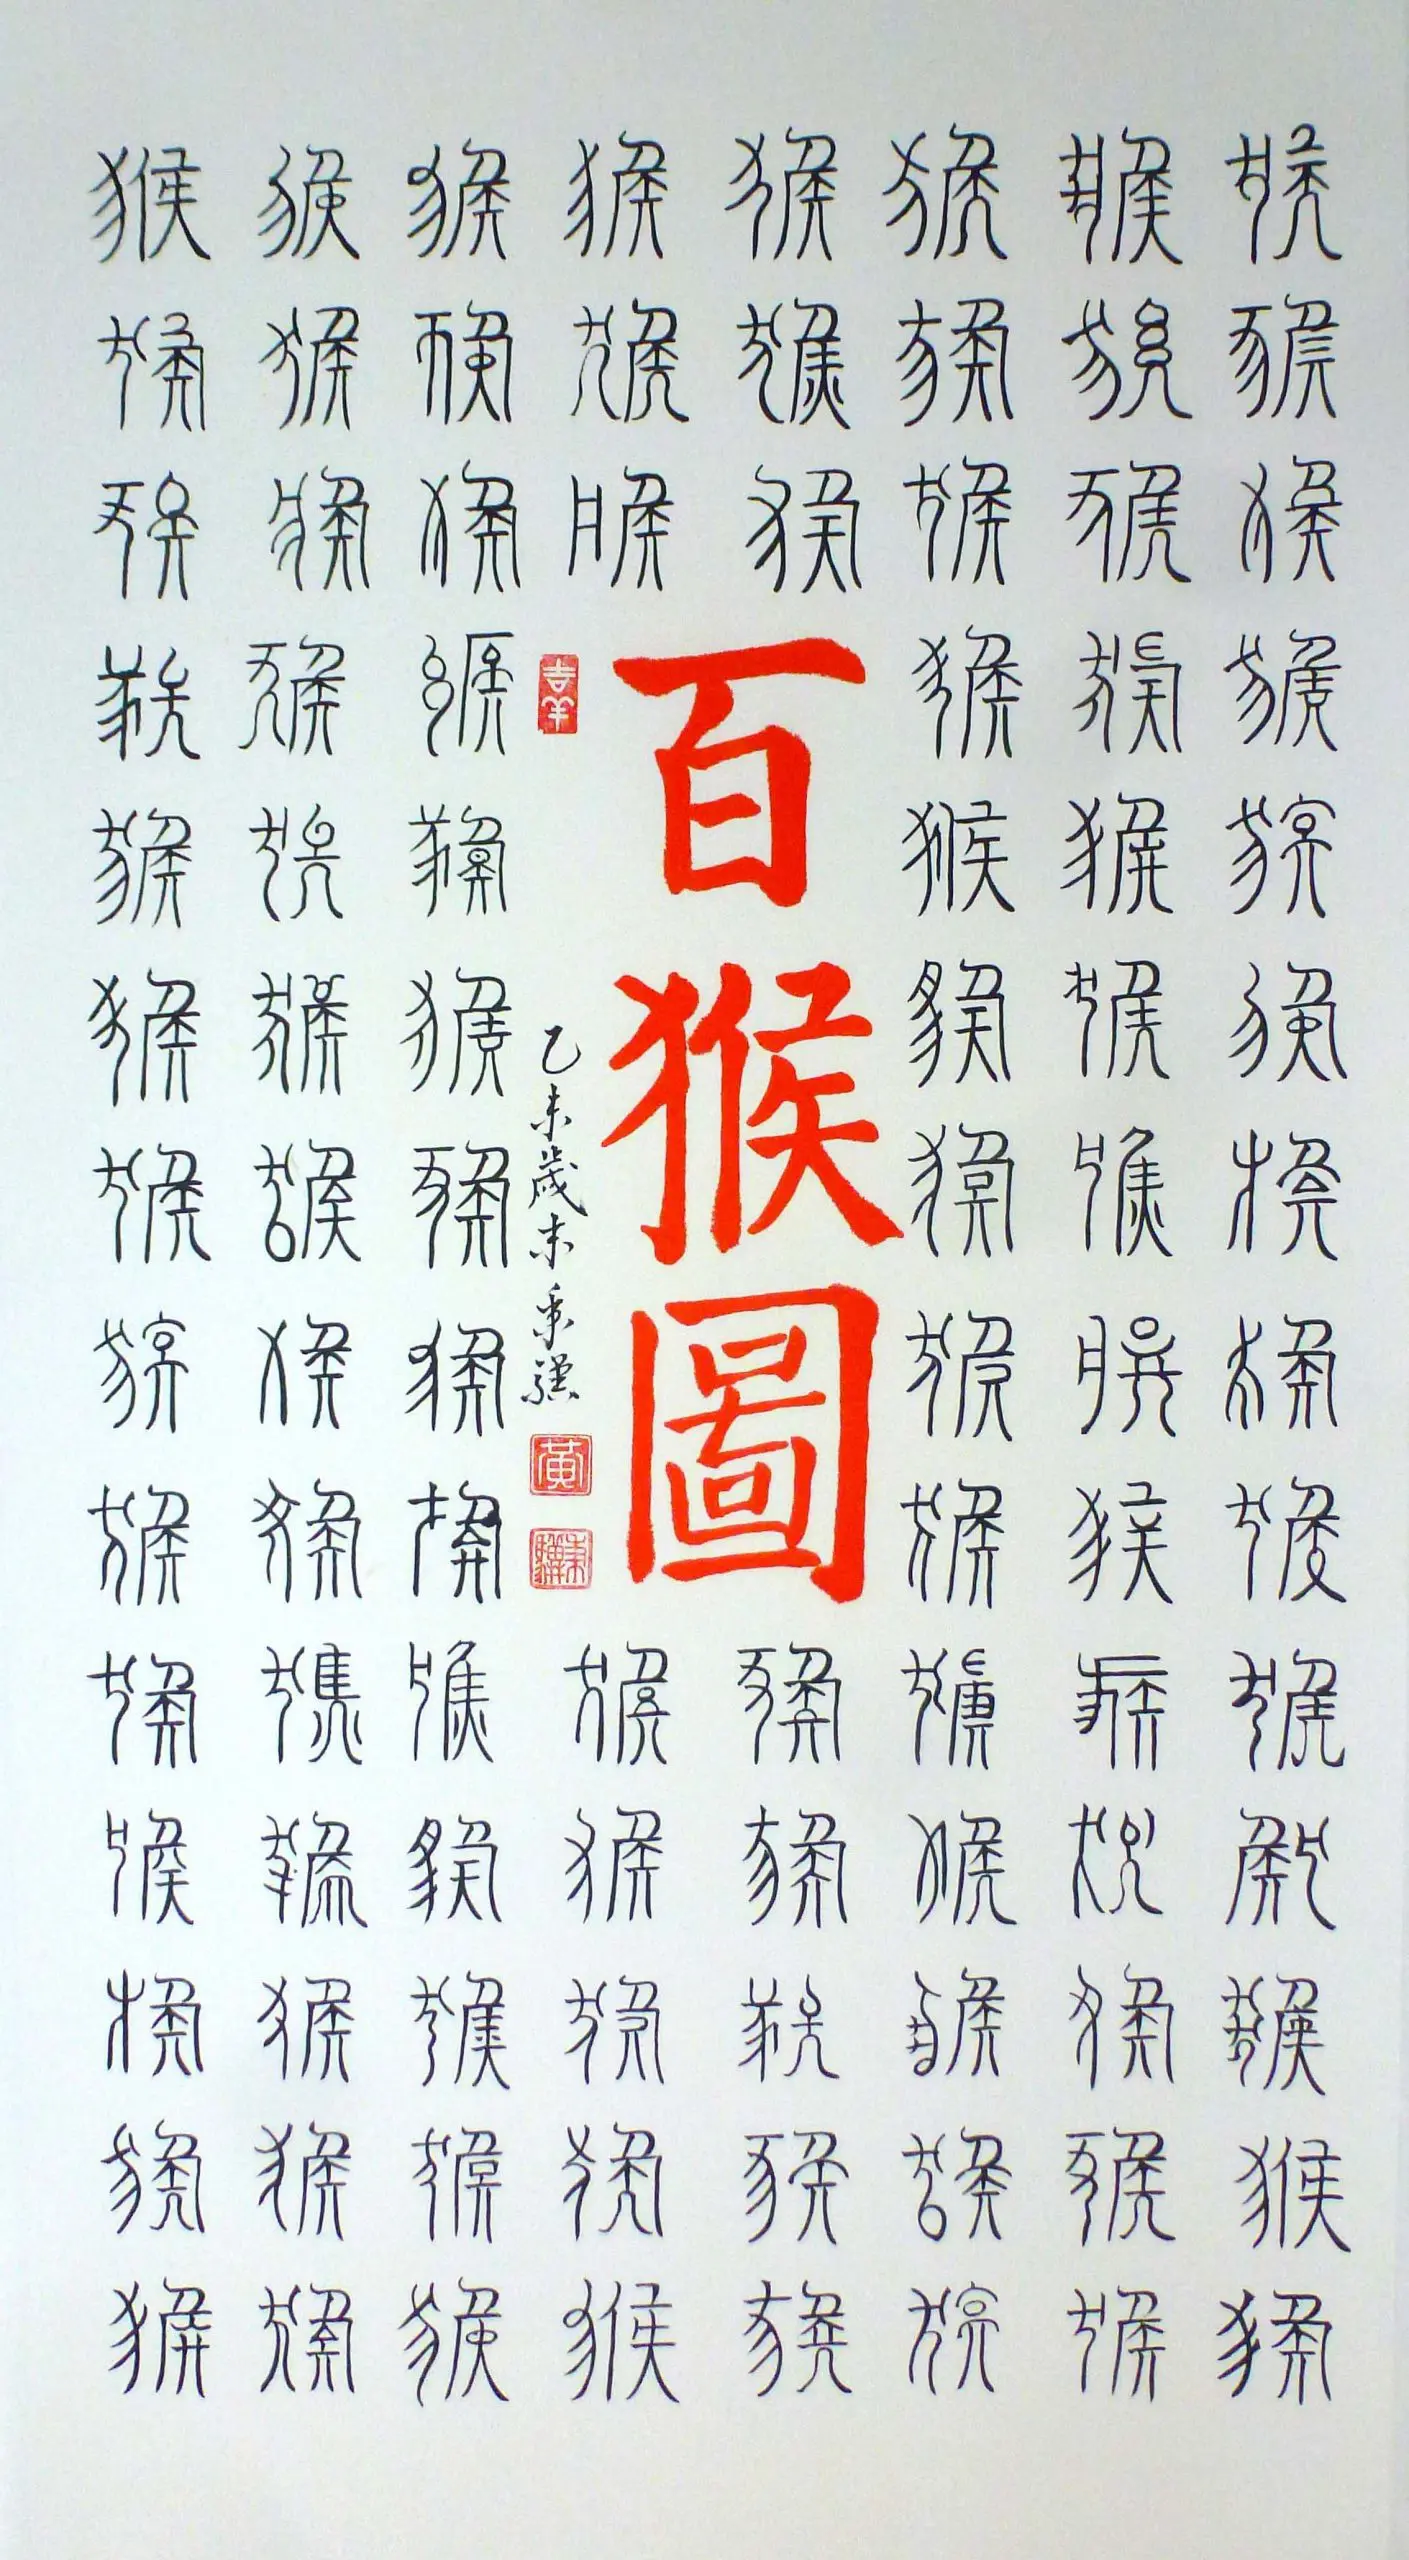 猴猴猴猴猴猴猴猴猴猴猴猴猴猴
猴猴猴猴猴猴猴猴猴猴猴猴猴猴
猴猴猴猴猴猴猴猴猴猴猴猴猴猴
猴猴猴
百猴圖
猴猴猴猴猴
猴猴猴
吉羊
乙未歲末秉
黄
猴猴猴猴猴
猴猴猴猴猴猴猴猴猴猴猴猴猴猴
猴猴猴猴猴猴猴猴猴猴猴猴猴猴
猴猴猴猴猴猴猴猴猴猴猴猴猴猴